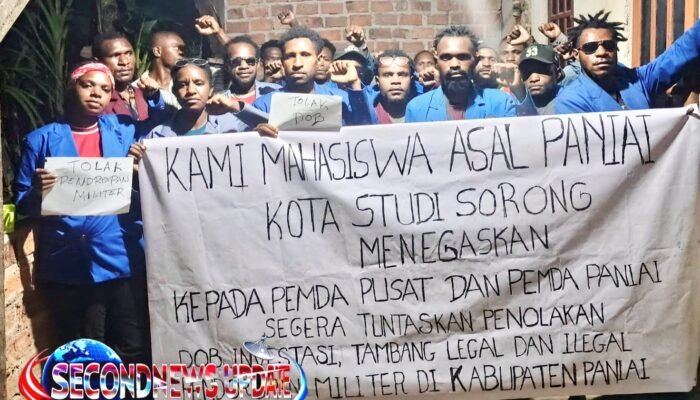 TOLAK
DOB
TOLAK
PENDROPAN
MILITER
KAMI MAHASISWA ASAL PANIAI
KOTA STUDI SORONG
MENEGASKAN
KEPADA PEMDA PUSAT DAN PEMDA PANIAI
SEGERA TUNTASKAN PENOLAKAN
DOB, INVESTASI, TAMBANG LEGAL DAN ILEGAL
MILITER DI KABUPATEN PANIAI
SECONDNEWSUPDATE